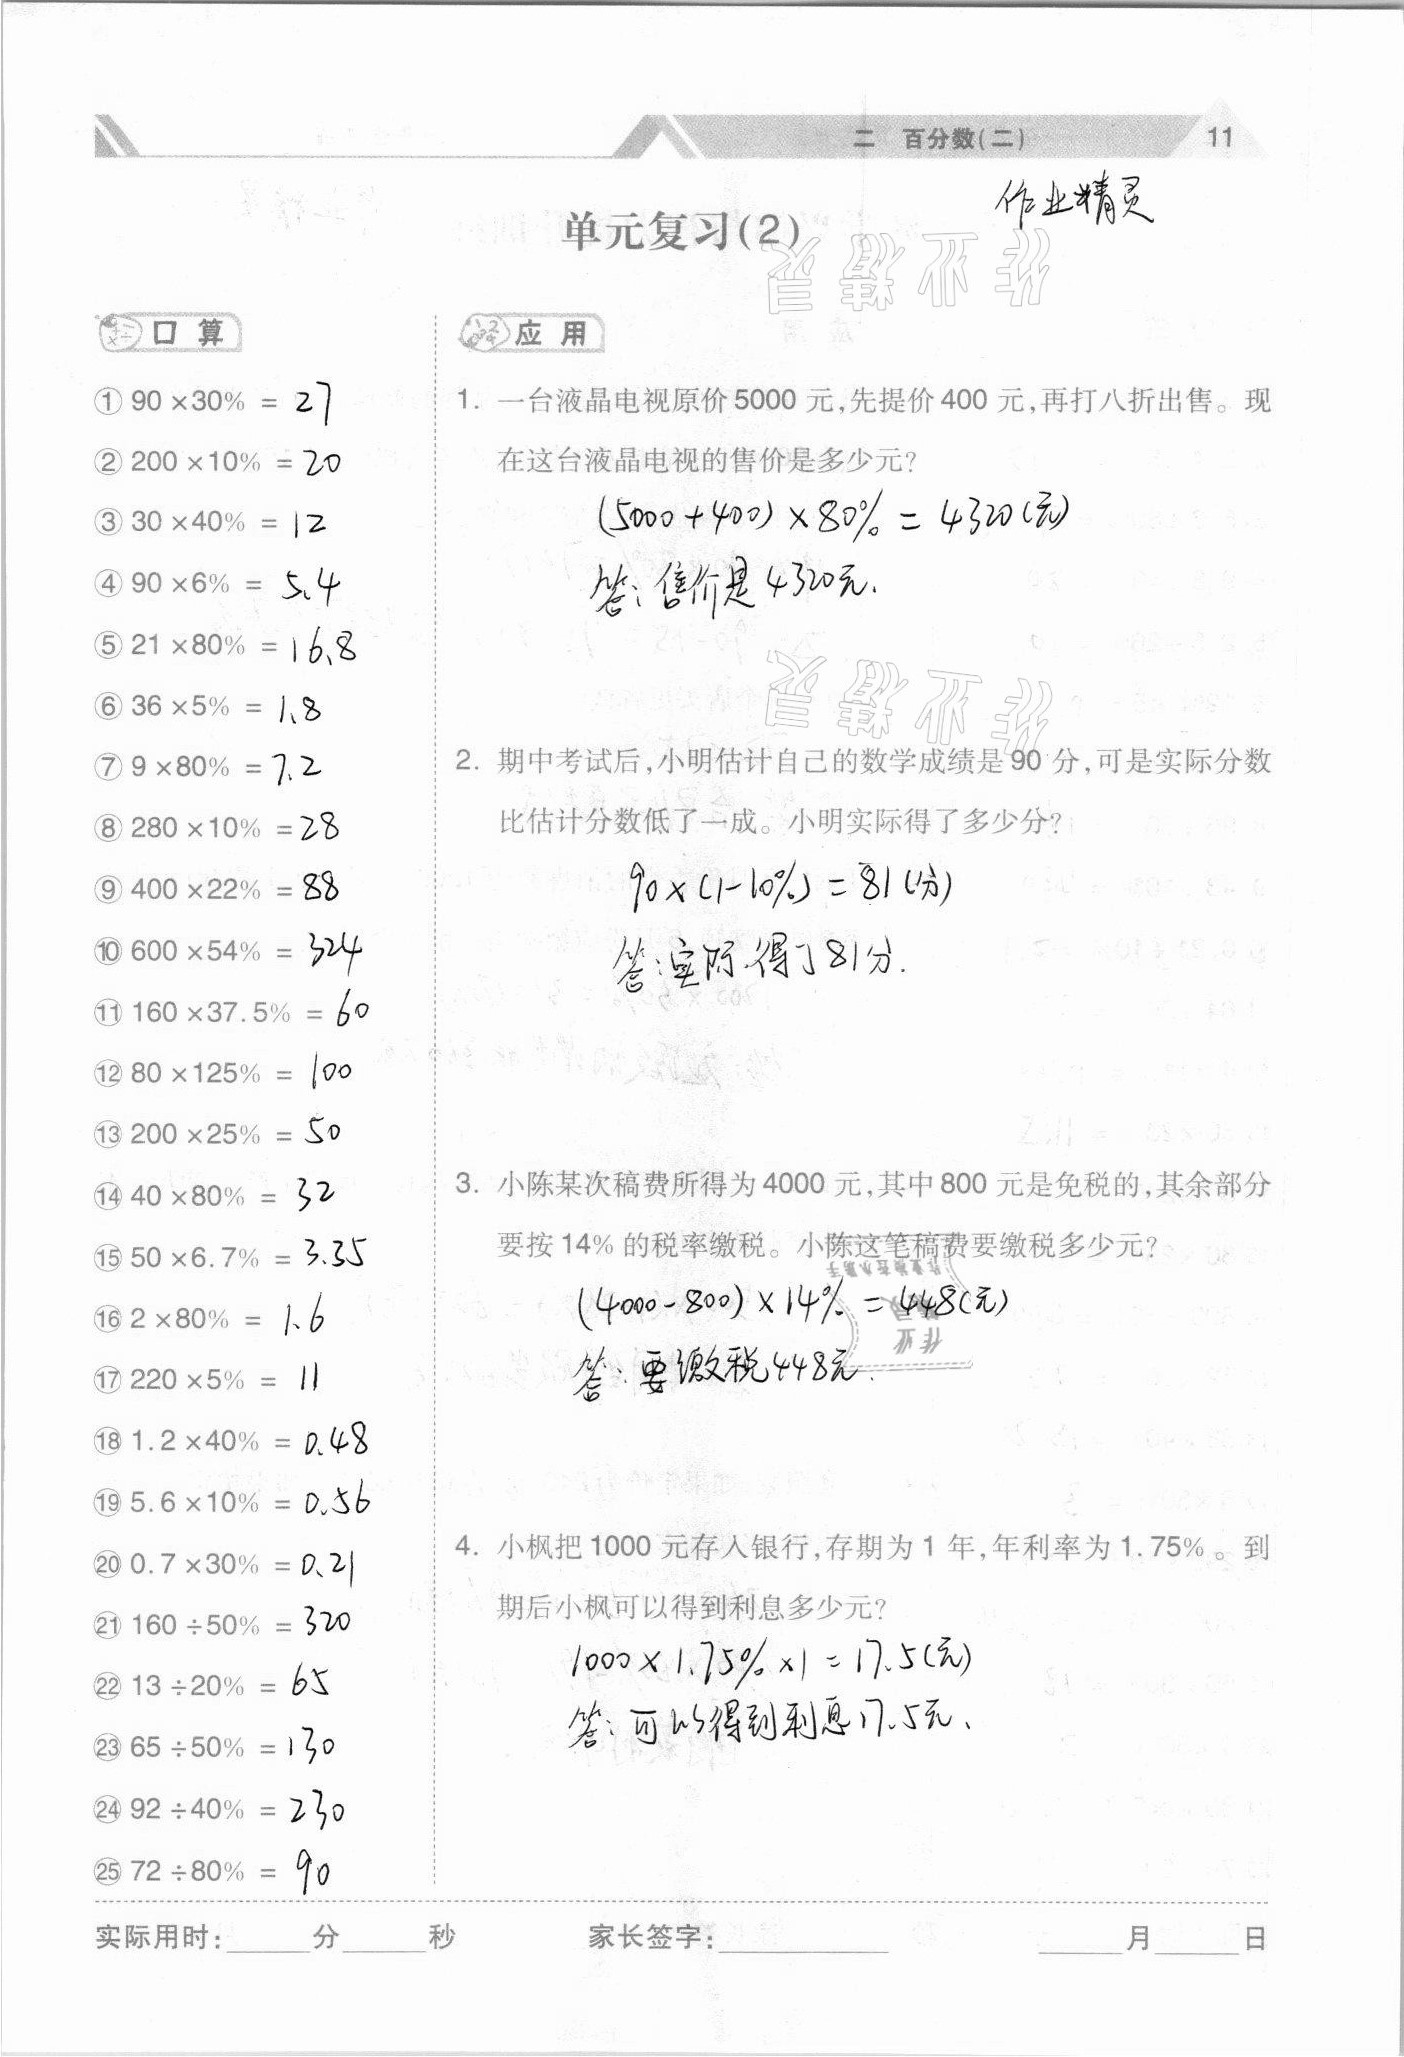 二 百分数(二) 11
作业精灵
单元复习(2)
口算
① 90×30% = 27
② 200×10% = 20
③ 30×40% = 12
④ 90×6% = 5.4
⑤ 21×80% = 16.8
⑥ 36×5% = 1.8
⑦ 9×80% = 7.2
⑧ 280×10% = 28
⑨ 400×22% = 88
⑩ 600×54% = 324
⑪ 160×37.5% = 60
⑫ 80×125% = 100
⑬ 200×25% = 50
⑭ 40×80% = 32
⑮ 50×6.7% = 3.35
⑯ 2×80% = 1.6
⑰ 220×5% = 11
⑱ 1.2×40% = 0.48
⑲ 5.6×10% = 0.56
⑳ 0.7×30% = 0.21
㉑ 160÷50% = 320
㉒ 13÷20% = 65
㉓ 65÷50% = 130
㉔ 92÷40% = 230
㉕ 72÷80% = 90
应用
1. 一台液晶电视原价5000元,先提价400元,再打八折出售。现
在这台液晶电视的售价是多少元?
(5000+400)×80% = 4320(元)
答:售价是4320元.
2. 期中考试后,小明估计自己的数学成绩是90分,可是实际分数
比估计分数低了一成。小明实际得了多少分?
90×(1-10%) = 81(分)
答:实际得了81分.
3. 小陈某次稿费所得为4000元,其中800元是免税的,其余部分
要按14%的税率缴税。小陈这笔稿费要缴税多少元?
(4000-800)×14% = 448(元)
答:要缴税448元.
4. 小枫把1000元存入银行,存期为1年,年利率为1.75%。到
期后小枫可以得到利息多少元?
1000×1.75%×1 = 17.5(元)
答:可以得到利息17.5元.
实际用时:______分______秒 家长签字:____________ ______月______日
作业精灵
作业精灵
作业
精灵